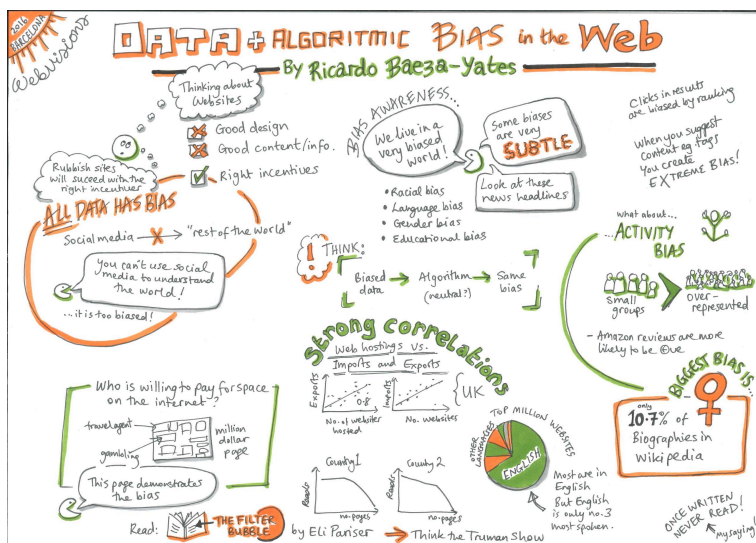 2016
BARCELONA
Webvisions
DATA + ALGORITMIC BIAS in the WEB
By Ricardo Baeza-Yates
Thinking about
Websites
Good design
Good content/info.
Right incentives
Rubbish sites
will succeed with the
right incentives
ALL DATA HAS BIAS
Social media → "rest of the world"
You can't use social
media to understand
the world!
...it is too biased!
BIAS AWARENESS...
We live in a
very biased
world!
Some biases
are very
SUBTLE
Look at these
news headlines
• Racial bias
• Language bias
• Gender bias
• Educational bias
! THINK:
Biased
data
→ Algorithm
(neutral?)
→ Same
bias
Clicks in results
are biased by ranking
When you suggest
content eg. tags
you create
EXTREME BIAS!
what about...
ACTIVITY
BIAS
Small
groups
over-
represented
- Amazon reviews are more
likely to be +ve
Strong correlations
Web hostings Vs.
Imports and Exports
Exports
0.8
No. of websites
hosted
Imports
No. websites
UK
Who is willing to pay for space
on the internet?
travel agent
gambling
million
dollar
page
This page demonstrates
the bias
Country 1
no. pages
Country 2
no. pages
TOP MILLION WEBSITES
OTHER
LANGUAGES
ENGLISH
Most are in
English
But English
is only no. 3
most spoken.
BIGGEST BIAS IS...
only
10.7% of
Biographies in
Wikipedia
Read: THE FILTER
BUBBLE
by Eli Pariser → Think the Truman Show
ONCE WRITTEN
NEVER READ!
my saying!